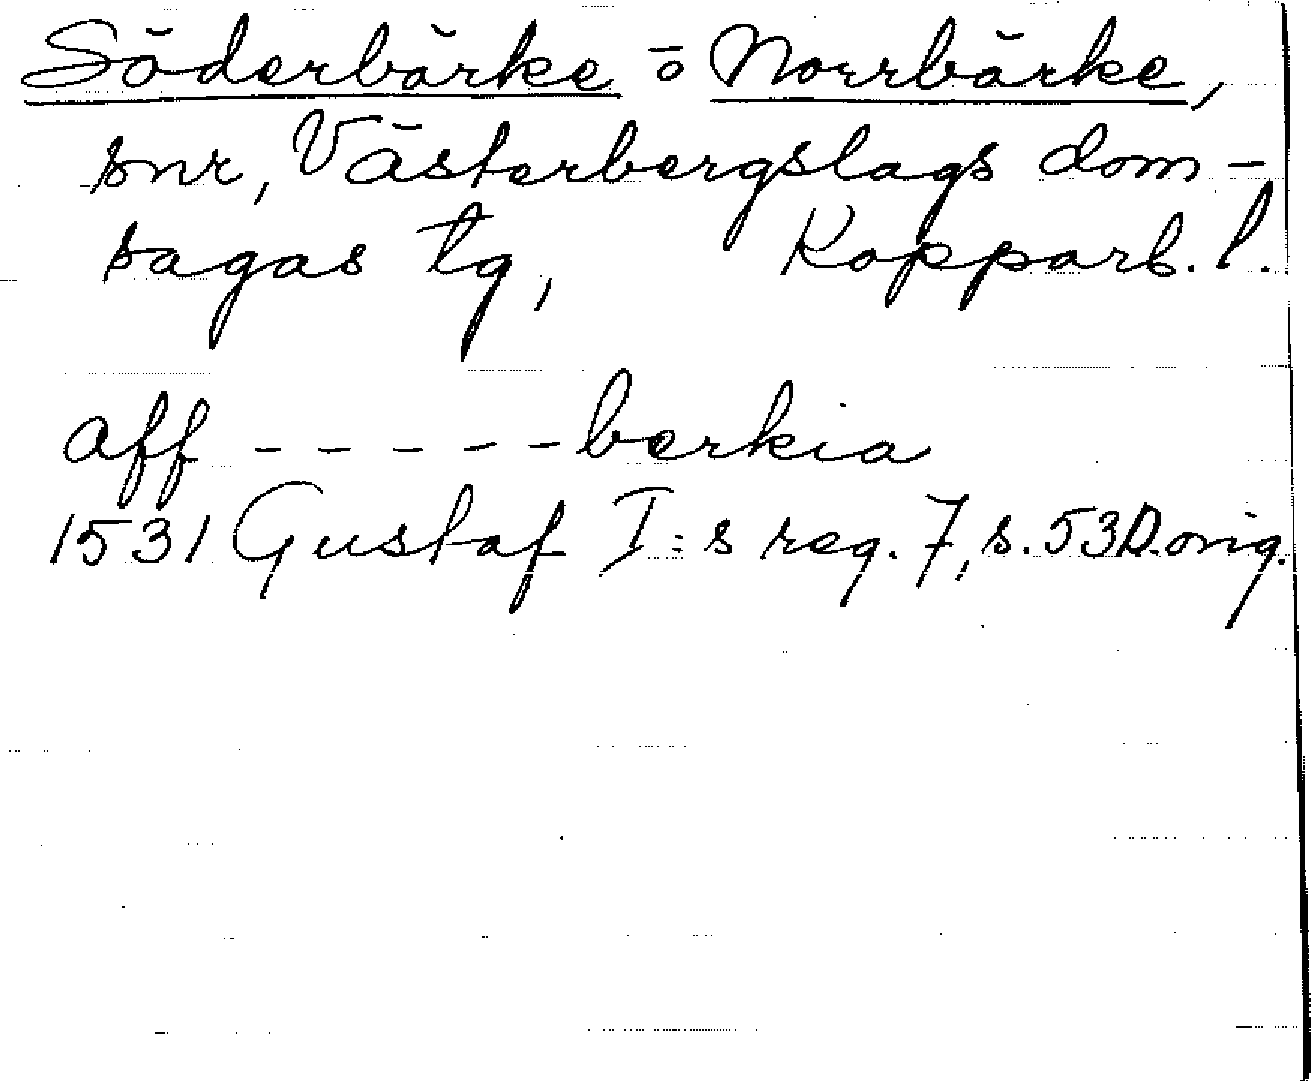 Söderbärke o Norrbärke,
snr, Västerbergslags dom-
sagas tg, Kopparb. l.
aff - - - - - berkia
1531 Gustaf I:s reg. 7, s. 530. orig.